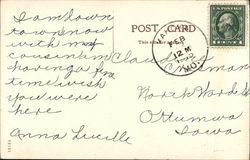 I am down
town now
with my
cousin am
having a fine
time wish
you were
here
Anna Lucille
POST CARD
FEB
12 M
MO.
North Ward St
Ottumwa
Iowa